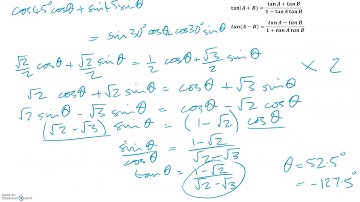 cos45°cosθ + sin45sinθ
= sin30°cosθ cos30°sinθ
tan(A + B) = (tan A + tan B)/(1 − tan A tan B)
tan(A − B) = (tan A − tan B)/(1 + tan A tan B)
√2/2 cosθ + √2/2 sinθ = 1/2 cosθ + √3/2 sinθ × 2
√2 cosθ + √2 sinθ = cosθ + √3 sinθ
√2 sinθ − √3 sinθ = cosθ − √2 cosθ
(√2 − √3) sinθ = (1 − √2) cosθ
sinθ/cosθ = (1 − √2)/(√2 − √3)
tanθ = (1 − √2)/(√2 − √3)
θ = 52.5°
= −127.5°